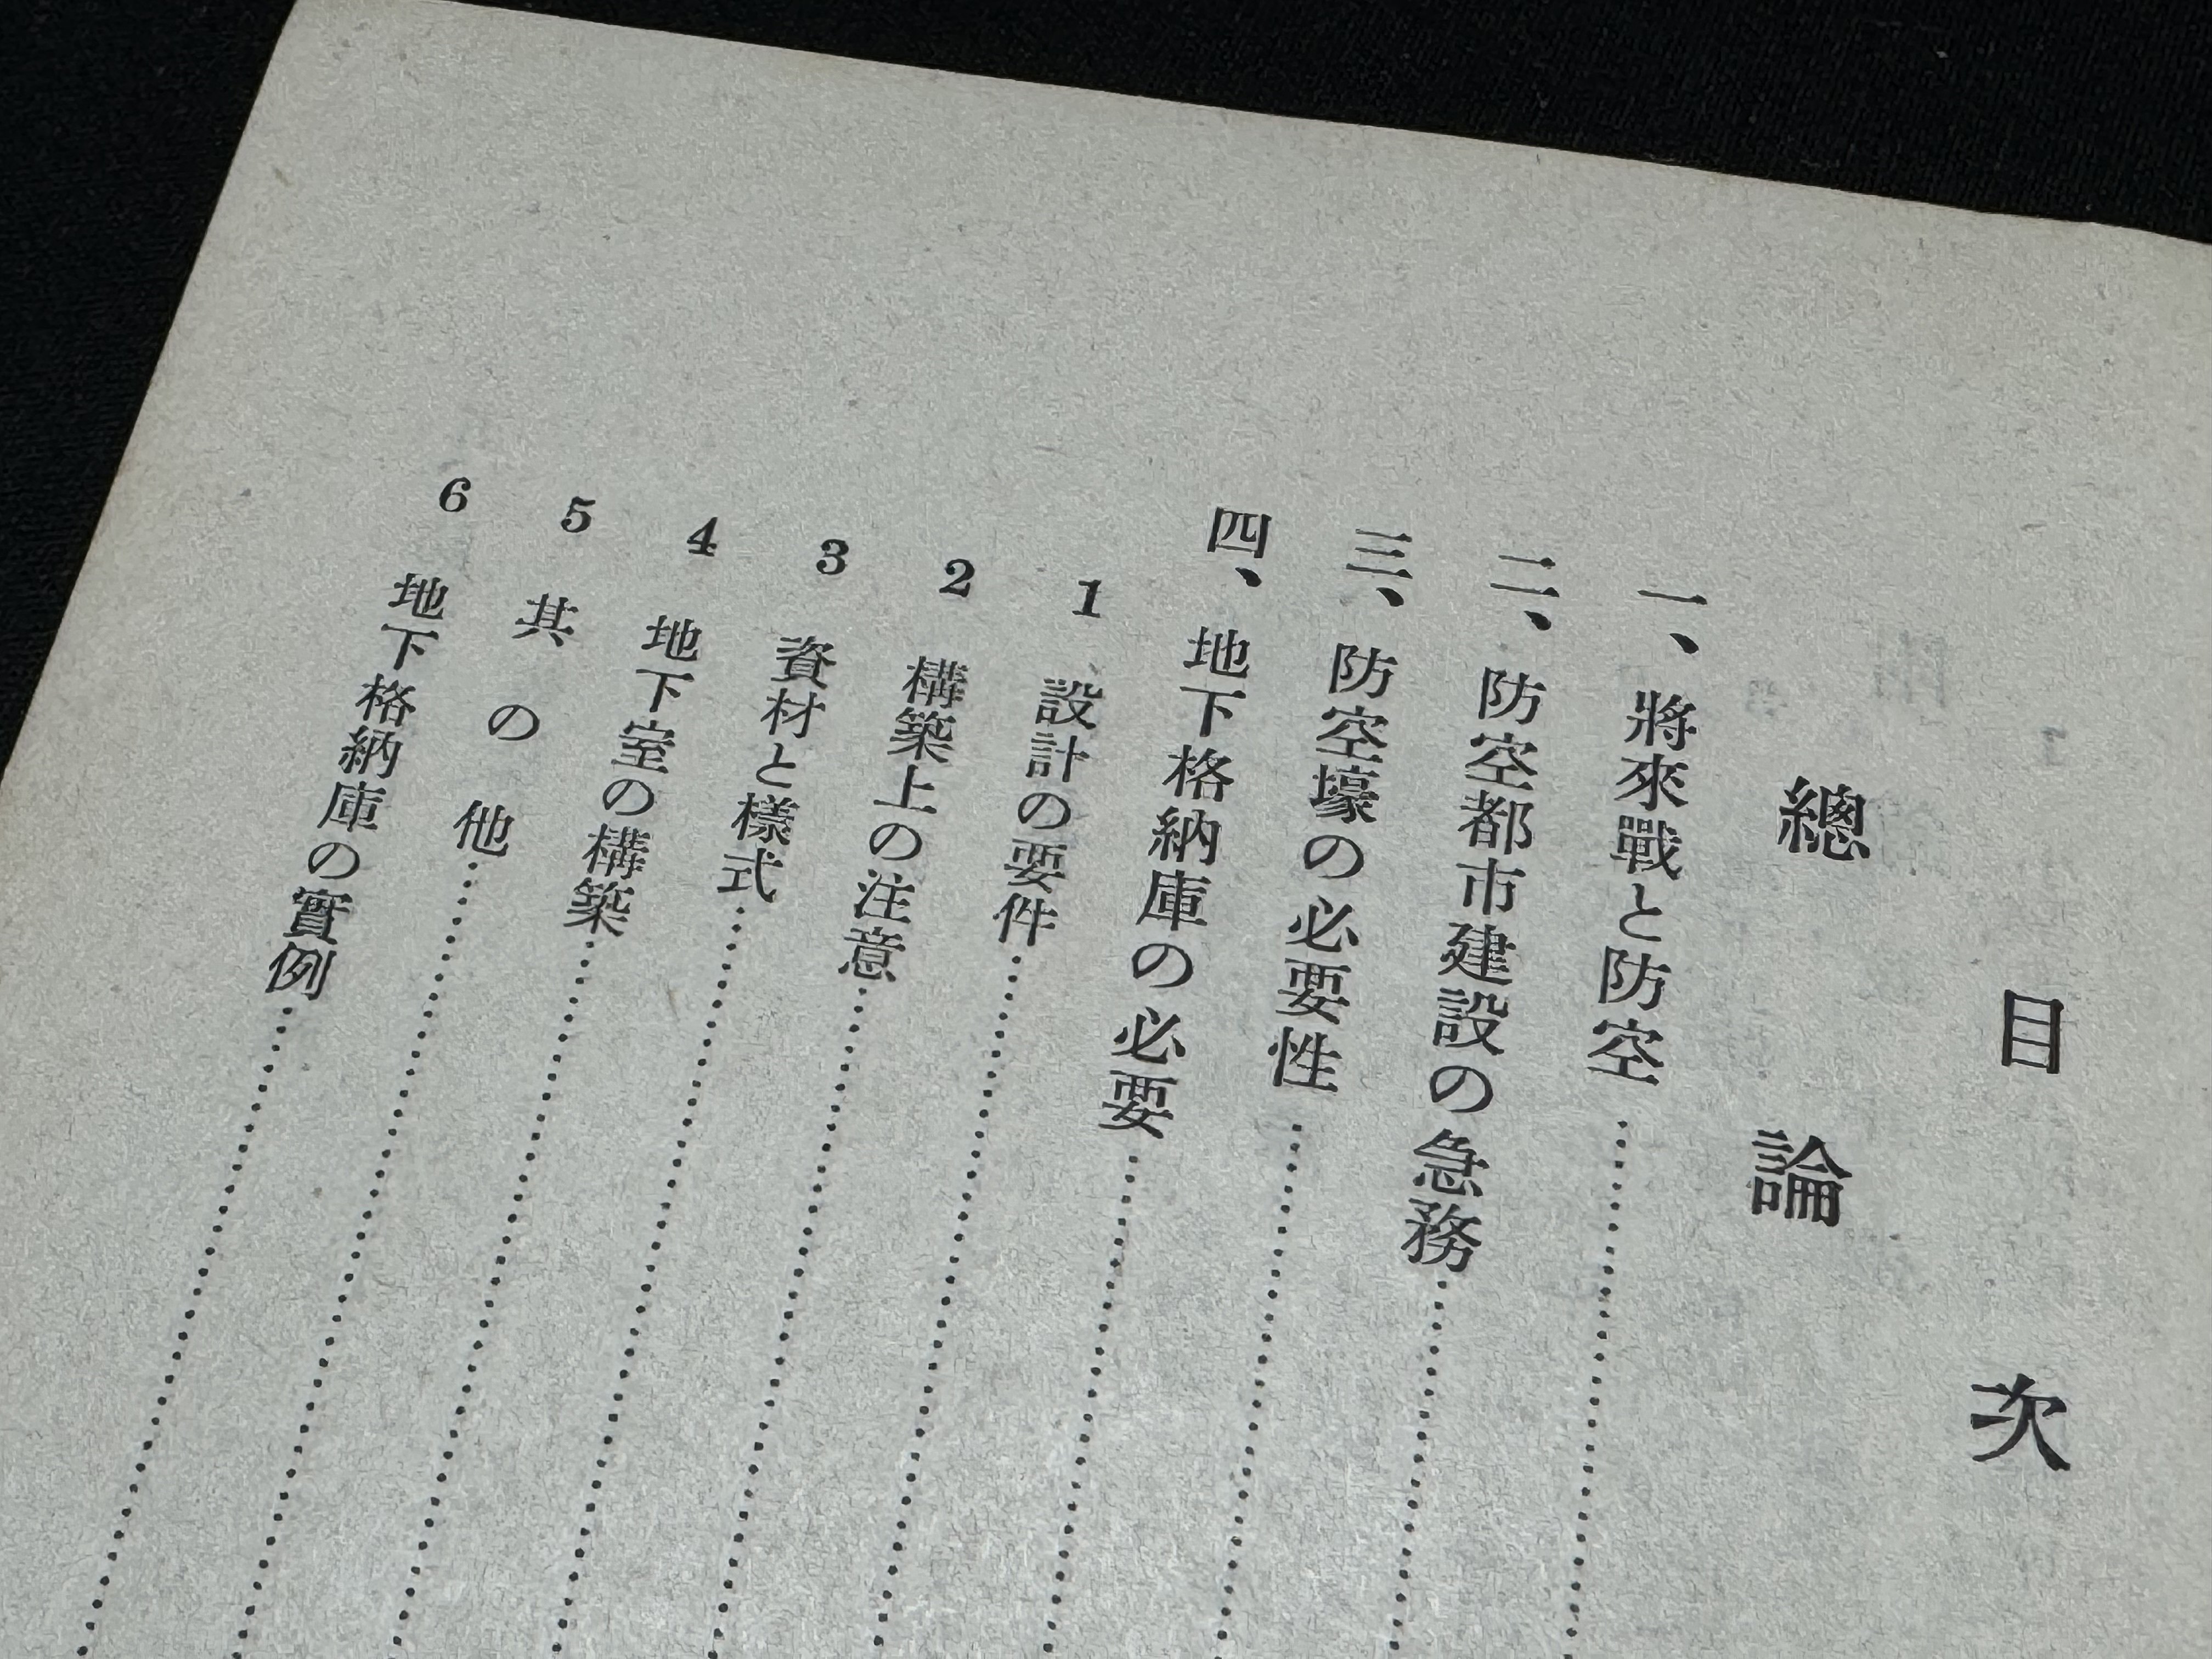 目次
總論
一、將來戰と防空……………
二、防空都市建設の急務……………
三、防空壕の必要性……………
四、地下格納庫の必要……………
1 設計の要件……………
2 構築上の注意……………
3 資材と樣式……………
4 地下室の構築……………
5 其の他……………
6 地下格納庫の實例……………